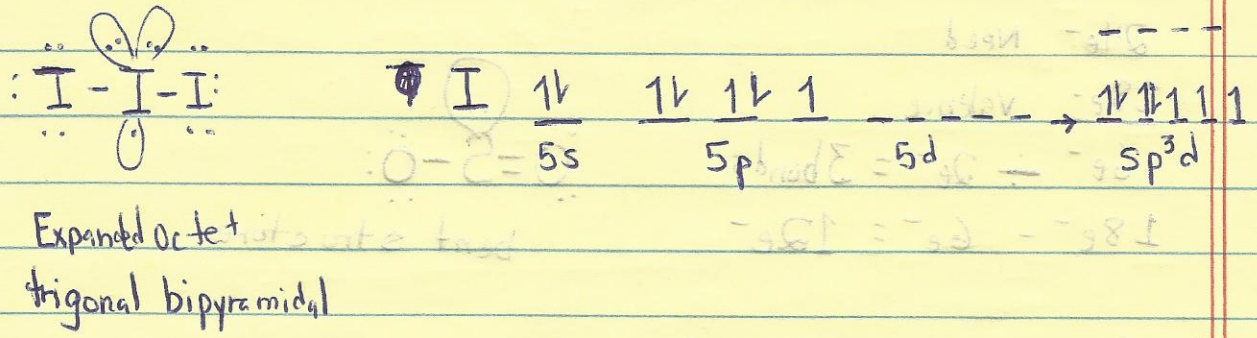 :Ï - I - Ï:
I 1⇂ 1⇂ 1⇂ 1 _ _ _ _ _ → 1⇂ 1⇂ 1 1 1
5s 5p 5d sp³d
Expanded Octet
trigonal bipyramidal